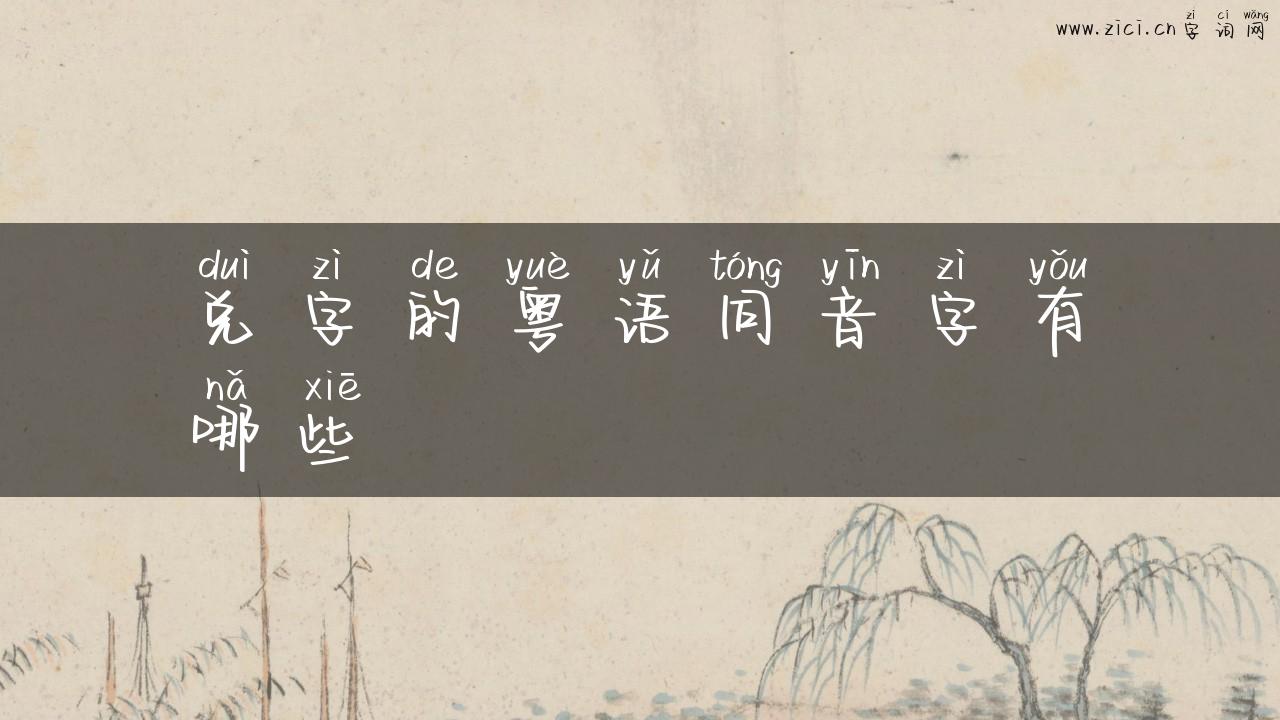 zì cí wǎng
www.zici.cn 字词网
duì zì de yuè yǔ tóng yīn zì yǒu
兑字的粤语同音字有
nǎ xiē
哪些